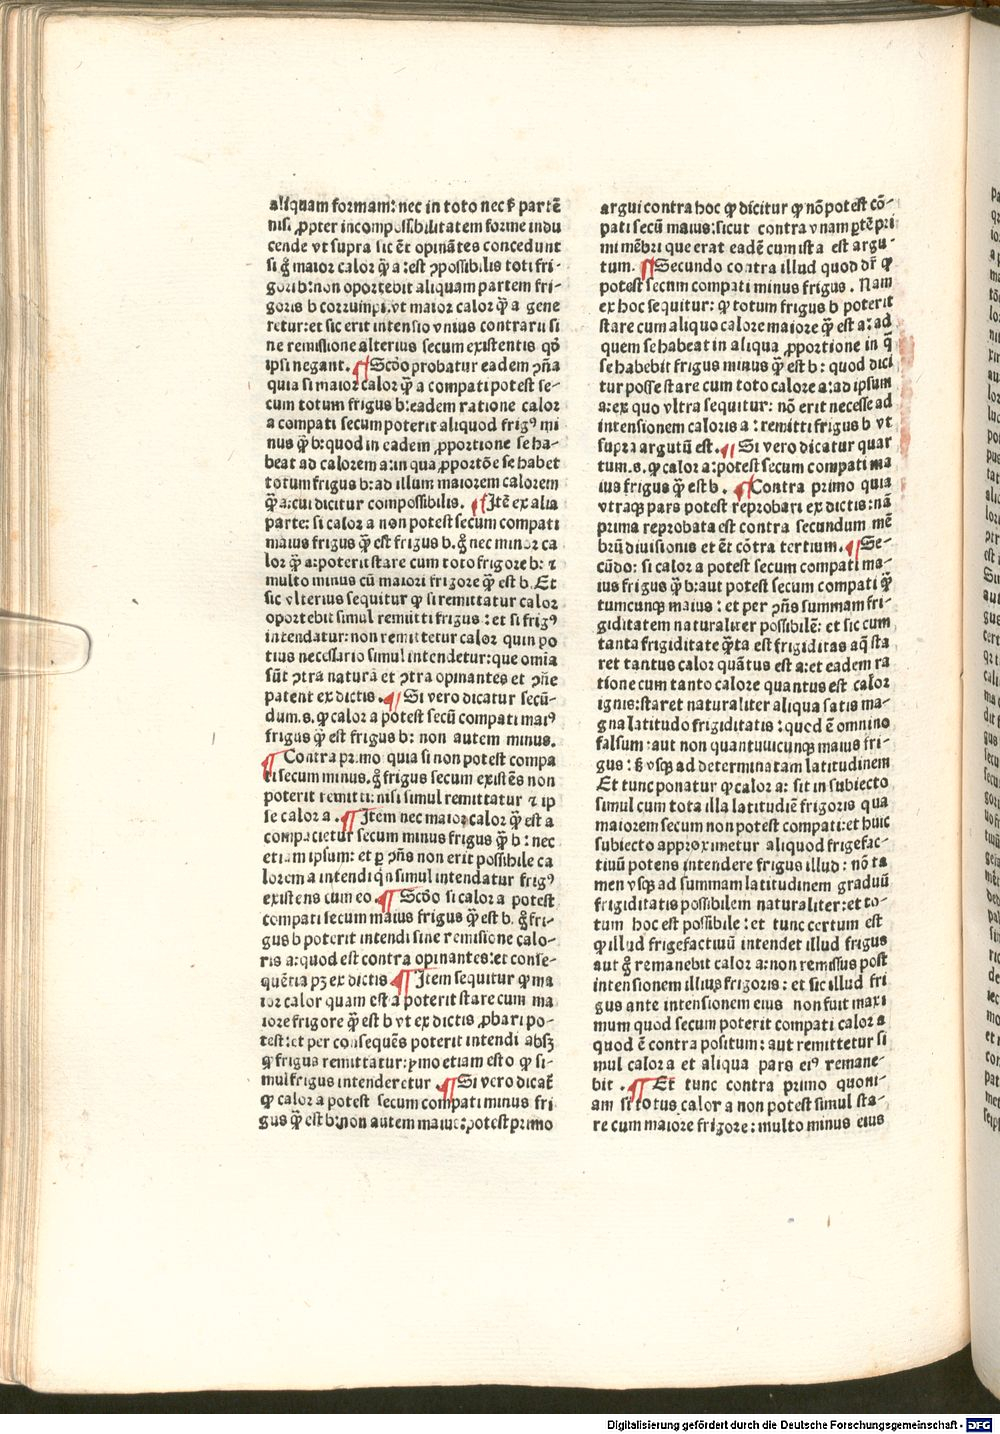 aliquam formam: nec in toto nec ꝑ partē
nisi ꝓpter incompossibilitatem forme indu
cende vt supra sic ēt opinātes concedunt
si g̊ maior calor ꝙ̄ a: est ꝯpossibilis toti fri-
gori b: non oportebit aliquam partem fri-
goris b corrumpi. vt maior calor ꝙ̄ a gene
retur: et sic erit intensio vnius contrarii si
ne remissione alterius secum existentis qđ
ipsi negant. ¶ Scďo probatur eadem ꝯña
quia si maior calor ꝙ̄ a compati potest se-
cum totum frigus b: eadem ratione calor
a compati secum poterit aliquod frigꝰ mi
nus ꝙ̄ b: quod in eadem ꝓportione se ha-
beat ad calorem a: in qua ꝓportōe se habet
totum frigus b: ad illum maiorem calorem
ꝙ̄ a: cui dicitur compossibilis. ¶ Itē ex alia
parte: si calor a non potest secum compati
maius frigus ꝙ̄ est frigus b. g̊ nec minor ca
lor ꝙ̄ a: poterit stare cum toto frigore b: ⁊
multo minus cū maiori frigore ꝙ̄ est b. Et
sic vlterius sequitur ꝙ si remittatur calor
oportebit simul remitti frigus: et si frigꝰ
intendatur: non remittetur calor quin po
tius necessario simul intendetur: que omīa
sūt ꝯtra naturā et ꝯtra opinantes et ꝯñe
patent ex dictis. ¶ Si vero dicatur secū-
dum. s. ꝙ calor a potest secū compati maiꝰ
frigus ꝙ̄ est frigus b: non autem minus.
¶ Contra primo quia si non potest compa
ti secum minus. g̊ frigus secum existēs non
poterit remitti: nisi simul remittatur ⁊ ip
se calor a. ¶ Item nec maior calor ꝙ̄ est a
compacietur secum minus frigus ꝙ̄ b: nec
etiam ipsum: et ꝑ ꝯñs non erit possibile ca
lorem a intendi qn̄ simul intendatur frigꝰ
existens cum eo. ¶ Scďo si calor a potest
compati secum maius frigus ꝙ̄ est b. g̊ fri-
gus b poterit intendi sine remisione calo-
ris a: quod est contra opinantes: et conse-
quētia pꝫ ex dictis ¶ Item sequitur ꝙ ma
ior calor quam est a poterit stare cum ma
iore frigore ꝙ̄ est b vt ex dictis ꝓbari po-
test: et per consequēs poterit intendi absꝫ
ꝙ frigus remittatur: ymo etiam esto ꝙ si-
mul frigus intenderetur. ¶ Si vero dicať
ꝙ calor a potest secum compati minus fri
gus ꝙ̄ est b: non autem maius: potest primo
argui contra hoc ꝙ dicitur ꝙ nō potest cō-
pati secū maius: sicut contra vnam ptē pri
mi mēbri que erat eadē cum ista est argu-
tum. ¶ Secundo contra illud quod dr̄ ꝙ
potest secum compati minus frigus. Nam
ex hoc sequitur: ꝙ totum frigus b poterit
stare cum aliquo calore maiore ꝙ̄ est a: ad
quem se habeat in aliqua ꝓportione in q̄
se habebit frigus minus ꝙ̄ est b: quod dici
tur posse stare cum toto calore a: ad ipsum
a: ex quo vltra sequitur: nō erit necesse ad
intensionem caloris a: remitti frigus b vt
supra argutū est. ¶ Si vero dicatur quar
tum. s. ꝙ calor a: potest secum compati ma
ius frigus ꝙ̄ est b. ¶ Contra primo quia
vtraqꝫ pars potest reprobari ex dictis: nā
prima reprobata est contra secundum mē
brū diuisionis et ēt cōtra tertium. ¶ Se-
cūdo: si calor a potest secum compati ma-
ius frigus ꝙ̄ b: aut potest secum compati ꝙ̄
tumcunqꝫ maius: et per ꝯñs summam fri-
giditatem naturaliter possibilē: et sic cum
tanta frigiditate ꝙ̄ta est frigiditas aq̄ sta
ret tantus calor quātus est a: et eadem ra
tione cum tanto calore quantus est calor
ignis: staret naturaliter aliqua satis ma-
gna latitudo frigiditatis: quod ē omnino
falsum: aut non quantuuicunqꝫ maius fri-
gus: ꝫ vsqꝫ ad determinatam latitudinem
Et tunc ponatur ꝙ calor a: sit in subiecto
simul cum tota illa latitudiē frigoris qua
maiorem secum non potest compati: et huic
subiecto approximetur aliquod frigefac-
tiuū potens intendere frigus illud: nō ta
men vsqꝫ ad summam latitudinem graduū
frigiditatis possibilem naturaliter: et to-
tum hoc est possibile: et tunc certum est
ꝙ illud frigefactiuū intendet illud frigus
aut g̊ remanebit calor a: non remissus post
intensionem illius frigoris: et sic illud fri
gus ante intensionem eius non fuit maxi
mum quod secum poterit compati calor a
quod ē contra positum: aut remittetur si
mul calor a et aliqua pars eiꝰ remane-
bit. ¶ Et tunc contra primo quoni-
am si totus calor a non potest simul sta-
re cum maiore frigore: multo minus eius
Digitalisierung gefördert durch die Deutsche Forschungsgemeinschaft - DFG